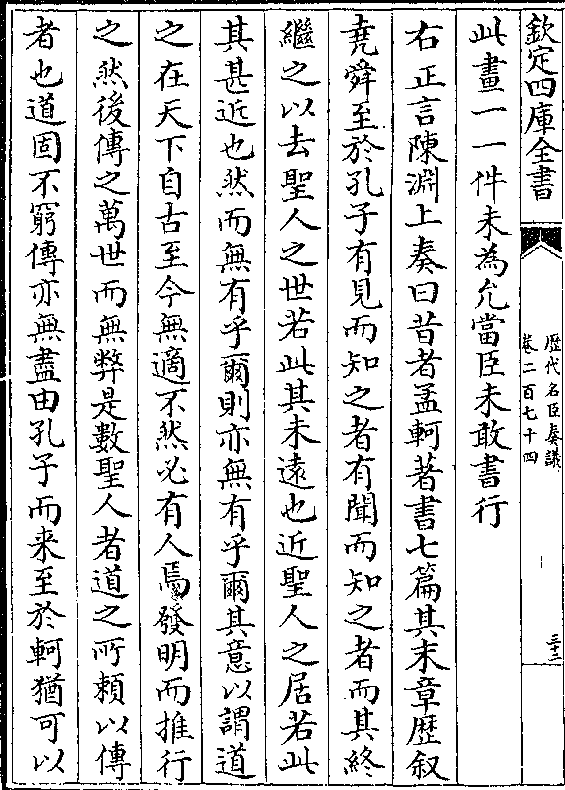 欽定四庫全書
歷代名臣奏議
卷二百七十四
三十二
此畫一一件未為允當臣未敢書行
右正言陳淵上奏曰昔者孟軻著書七篇其末章歷叙
堯舜至於孔子有見而知之者有聞而知之者而其終
繼之以去聖人之世若此其未遠也近聖人之居若此
其甚近也然而無有乎爾則亦無有乎爾其意以謂道
之在天下自古至今無適不然必有人焉發明而推行
之然後傳之萬世而無弊是數聖人者道之所頼以傳
者也道固不窮傳亦無盡由孔子而来至於軻猶可以